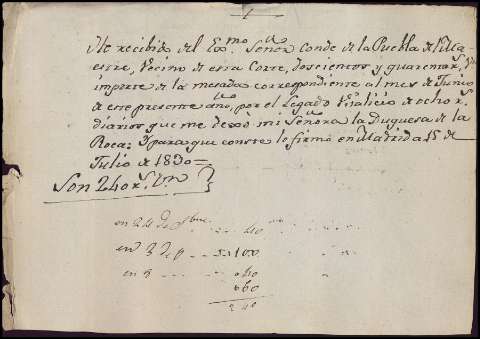 He recibido del Exmo. Señor Conde de la Puebla del Ma-
estre, Vecino de esta Corte, doscientos y quarenta rs. Vn.
importe de la mesada correspondiente al mes de Junio
de este presente año, por el Legado Vitalicio de ocho rs.
diarios que me dexó mi Señora la Duquesa de la
Roca: Y para que conste lo firmo en Madrid a 15 de
Julio de 1830=
Son 240 rs. Vn.
en 24 de
40
en 3 de
100
en 9
040
060
240